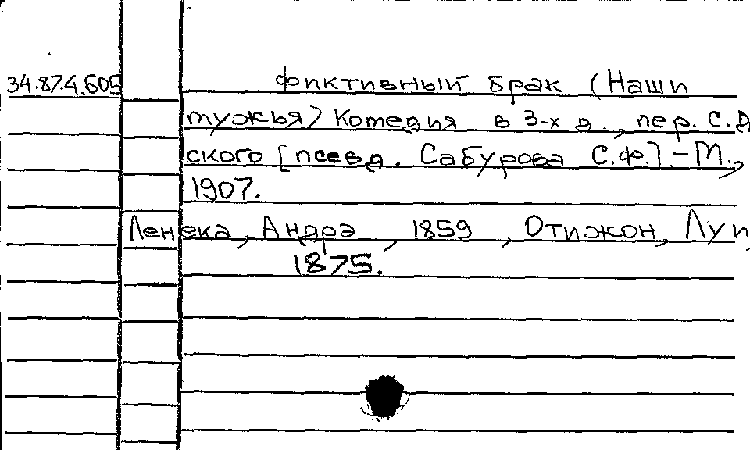 34.87.4.605 Фиктивный брак (Наши
мужья) Комедия в 3-х д., пер. С.Д
ского [псевд. Сабурова С.Ф.] – М.,
1907.
Ленека, Андрэ, 1859, Отижон, Луи,
1875.